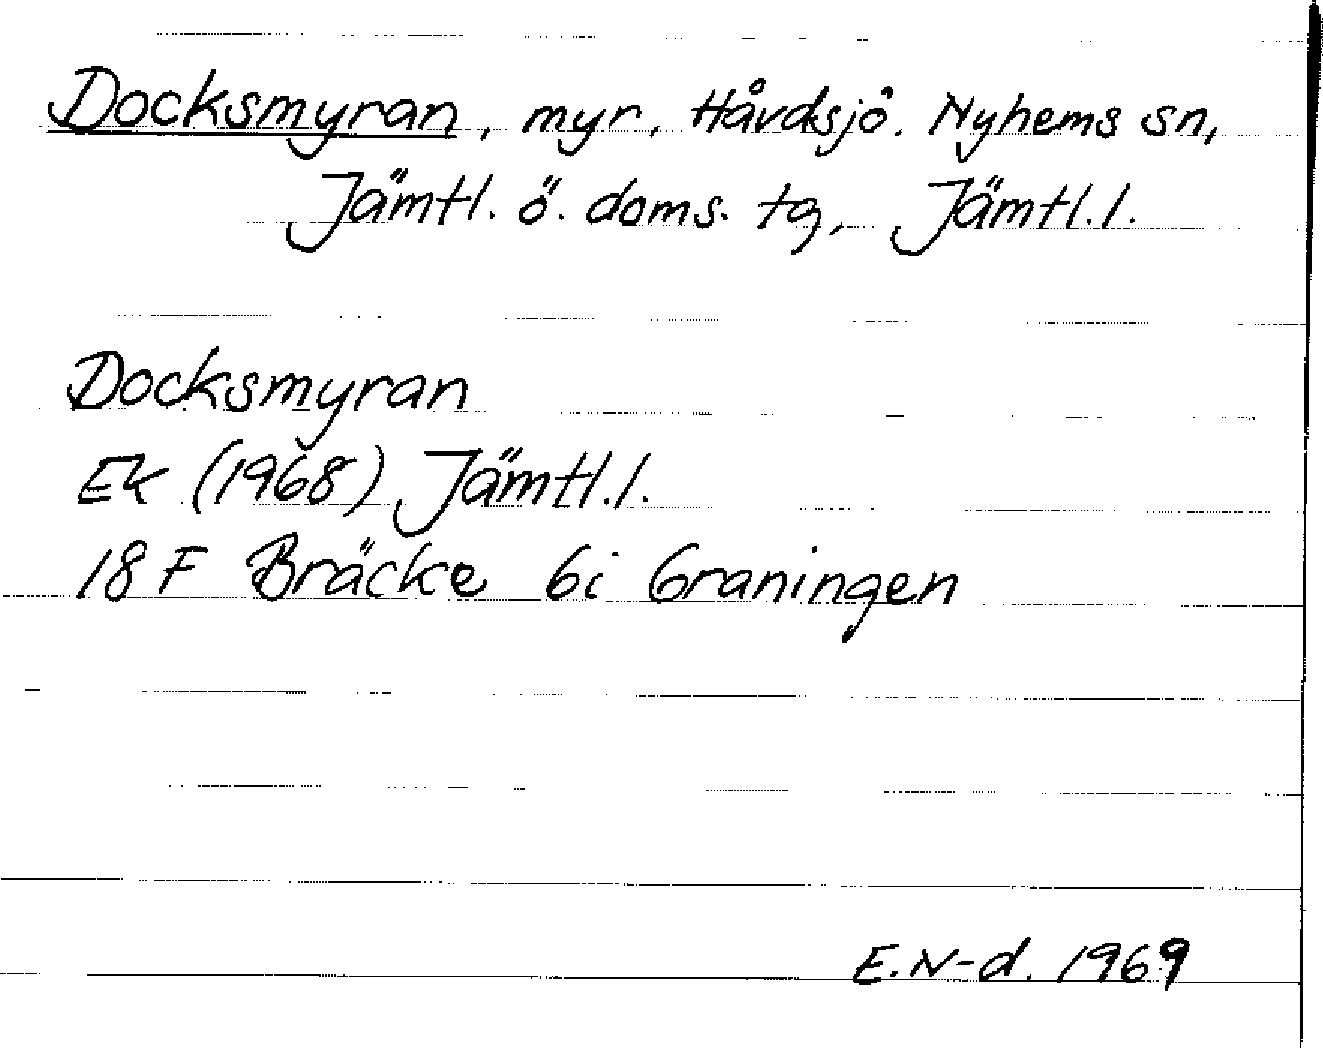 Docksmyran, myr, Håvdsjö. Nyhems sn,
Jämtl. ö. doms. tg, Jämtl. l.
Docksmyran
EK (1968) Jämtl. l.
18 F Bräcke 6i Graningen
E. N-d. 1969